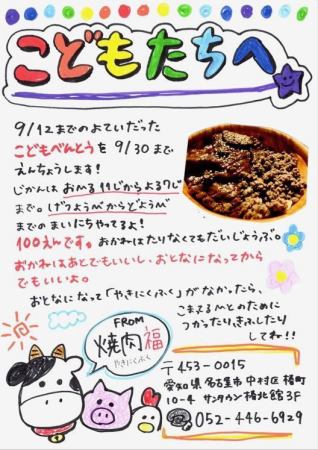 こどもたちへ
9/12までのよていだった
こどもべんとうを9/30まで
えんちょうします!
じかんは おひる11じからよる7じ
まで。げつようびからどようび
までのまいにちやってるよ!
100えんです。おかねはたりなくてもだいじょうぶ。
おかねはあとでもいいし、おとなになってから
でもいいよ。
おとなになって「やきにくふく」がなかったら、
こまってるひとのために
つかったり、きふしたり
してね!!
FROM
焼肉福
やきにくふく
〒453-0015
愛知県名古屋市中村区椿町
10-4 サンタウン椿北館3F
052-446-6929